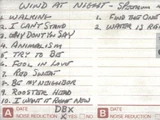 WIND AT NIGHT - 
1. WALKING
2. I CAN'T STAND
3. WHY DON'T I SAY
4. ANIMALISM
5. TRY TO BE
6. FOOL IN LOVE
7. RED SWEAT
8. BE MY NEIGHBOR
9. ROOSTER HEAD
10. I WANT IT RIGHT NOW
1. FIND BEE ONE
2. WATER IS
A DATE
NOISE REDUCTION
DBX
X YES NO
B DATE
NOISE REDUCTION